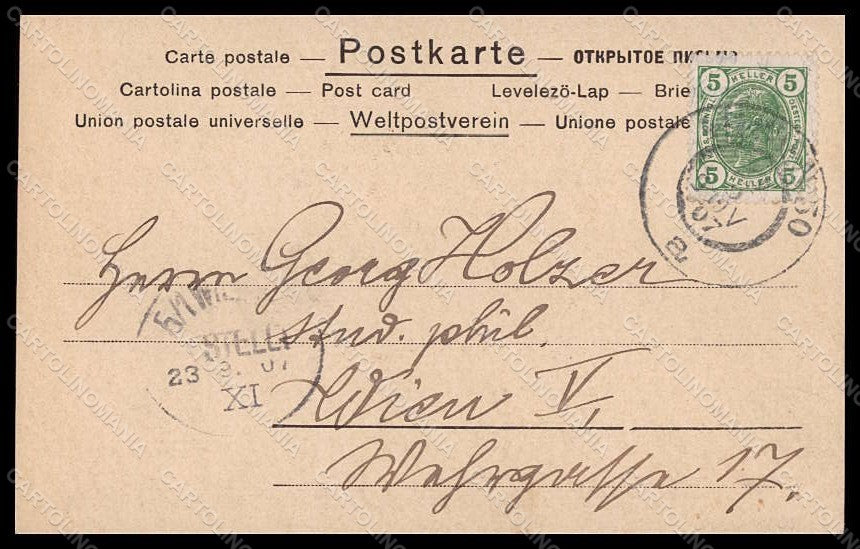 Carte postale — Postkarte — ОТКРЫТОЕ
Cartolina postale — Post card Levelezö-Lap —
Union postale universelle — Weltpostverein — Unione postale
5 HELLER 5
5 HELLER 5
Herrn Georg Holzer
stud. phil.
Wien V,
Wehrgasse 17.
5/1 WIEN
BESTELLT
23 07
XI
50
NOV
07
CARTOLINOMANIA